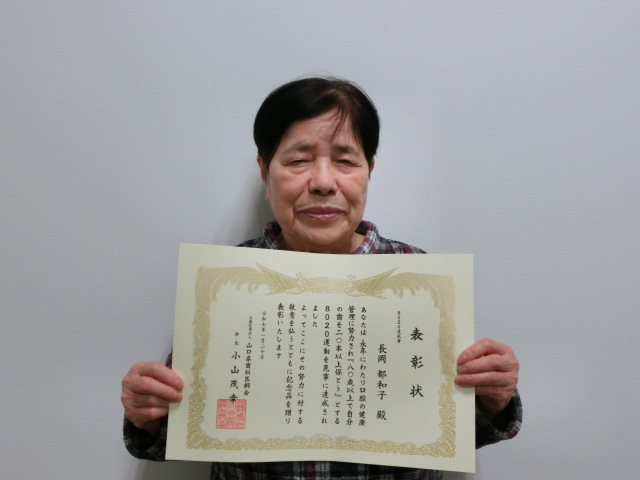 表彰状
8020達成者
長岡 都和子 殿
あなたは永年にわたり口腔の健康
管理に努力され『八〇歳以上で自分
の歯を二〇本以上保とう』とする
8020運動を見事に達成され
ました
よってここにその努力に対する
敬意を払うとともに記念品を贈り
表彰いたします
令和七年一月二十日
公益社団法人 山口県歯科医師会
会長 小山茂幸